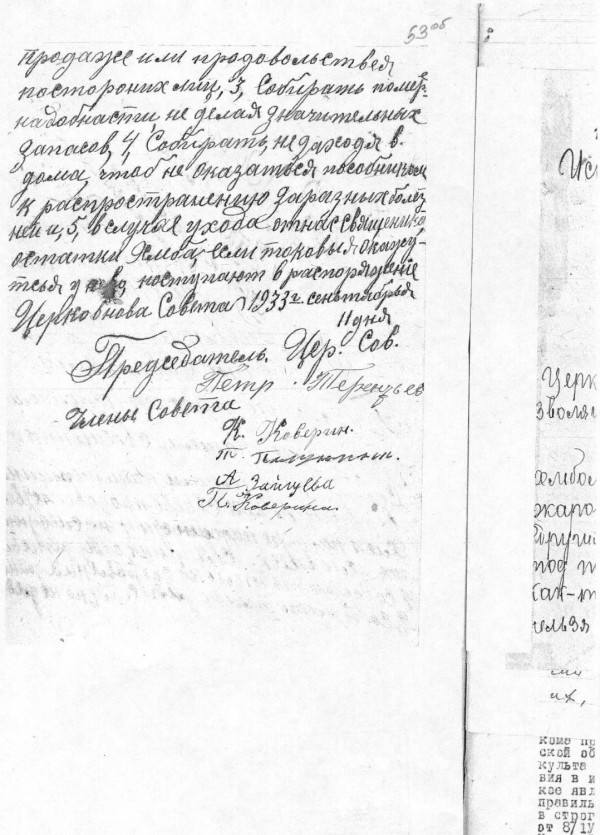 53 об
продаже или продовольствея
постороних лиц, 3, Собирать по мере
надобнасти, не делая значительных
запасов, 4, Собирать, не даходя в
дома, чтоб не оказаться пособником
к распростронению заразных болез
ней и, 5, в случае ухода от нас священика
остатки хлеба, если токовыя окажу-
тсья у поступают в распоряжение
Церковнова Совета 1933 г. сеньтяабрья
11 дня
Председатель. Цер. Сов.
Петр Терентьев
Члены Совета
К. Коверин.
А Зайцева
П. Коверина.
Церк
зволя
хлебо
жаро
други
под
как-т
ельзя
их,
кома пр
ской об
культа
вия в и
кое явл
правиль
в строг
от 8/IУ